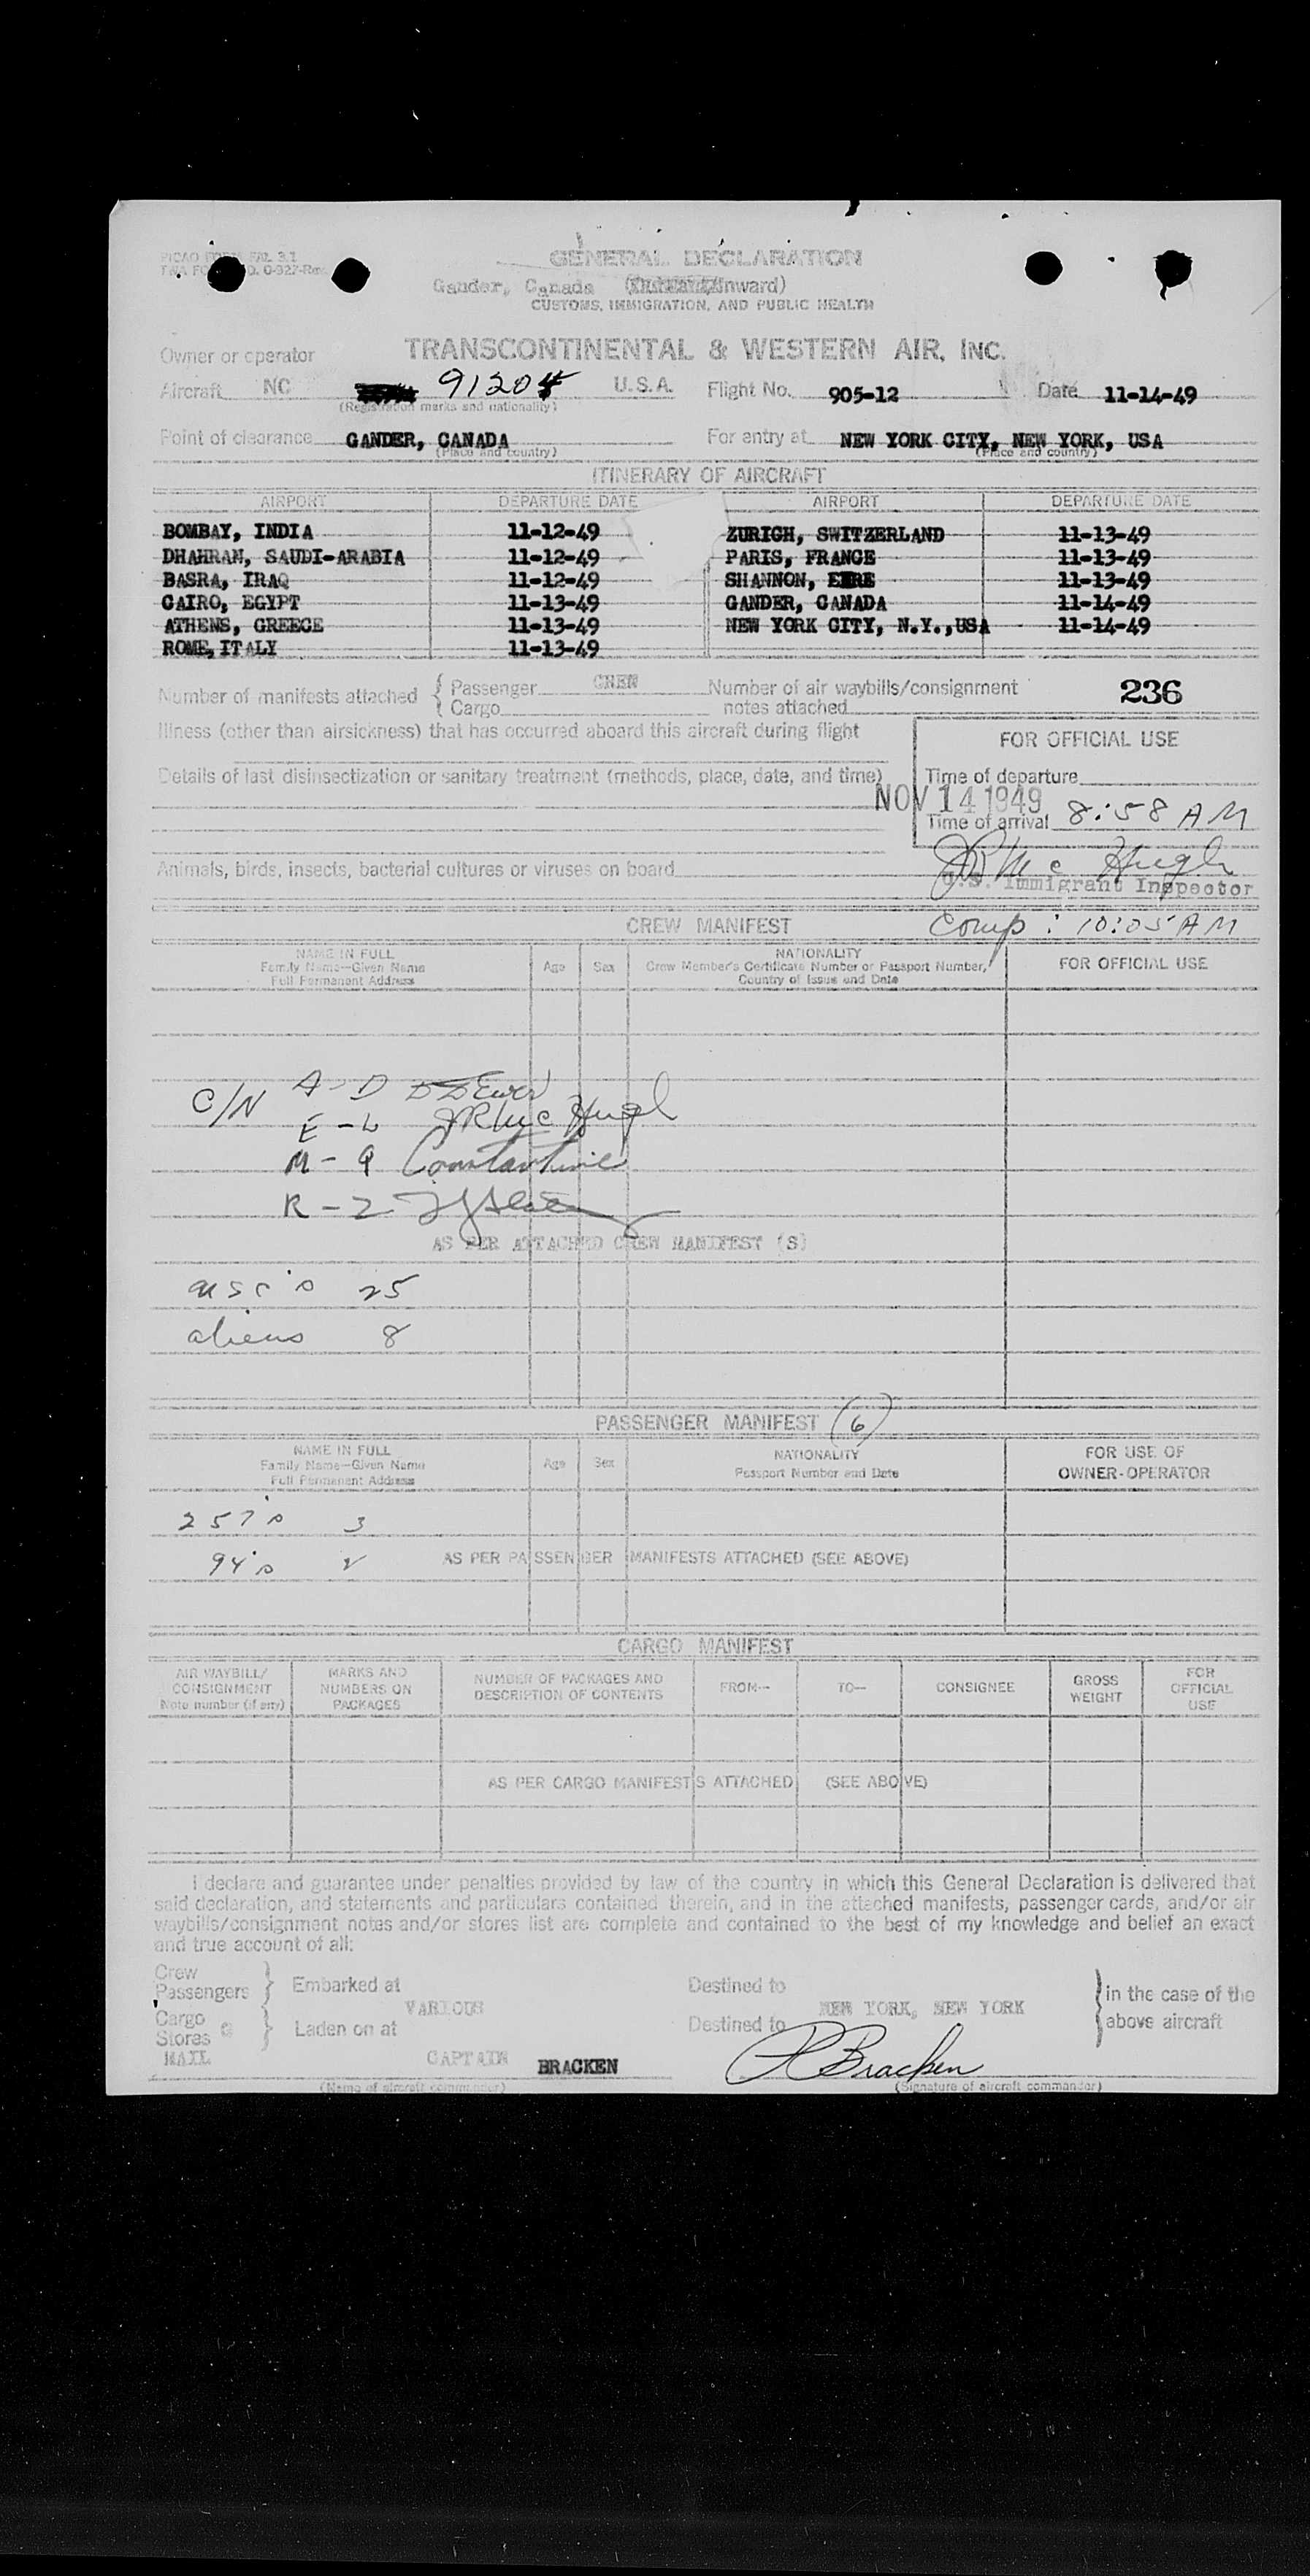 PICAO FORM FAL 3.1
GENERAL DECLARATION
Gander, Canada (Inward)
CUSTOMS, IMMIGRATION, AND PUBLIC HEALTH
Owner or operator TRANSCONTINENTAL & WESTERN AIR, INC.
Aircraft NC 91204 U.S.A. Flight No. 905-12 Date 11-14-49
(Registration marks and nationality)
Point of clearance GANDER, CANADA For entry at NEW YORK CITY, NEW YORK, USA
(Place and country) (Place and country)
ITINERARY OF AIRCRAFT
AIRPORT DEPARTURE DATE AIRPORT DEPARTURE DATE
BOMBAY, INDIA 11-12-49 ZURICH, SWITZERLAND 11-13-49
DHAHRAN, SAUDI-ARABIA 11-12-49 PARIS, FRANCE 11-13-49
BASRA, IRAQ 11-12-49 SHANNON, EIRE 11-13-49
CAIRO, EGYPT 11-13-49 GANDER, CANADA 11-14-49
ATHENS, GREECE 11-13-49 NEW YORK CITY, N.Y.,USA 11-14-49
ROME, ITALY 11-13-49
Number of manifests attached { Passenger CREW Number of air waybills/consignment 236
Cargo notes attached
Illness (other than airsickness) that has occurred aboard this aircraft during flight
FOR OFFICIAL USE
Details of last disinsectization or sanitary treatment (methods, place, date, and time)
Time of departure
NOV 14 1949
Time of arrival 8:58 AM
JR McHugh
Animals, birds, insects, bacterial cultures or viruses on board
U.S. Immigrant Inspector
CREW MANIFEST Comp: 10:05 AM
NAME IN FULL
Family Name—Given Name
Full Permanent Address
Age Sex
NATIONALITY
Crew Member's Certificate Number or Passport Number,
Country of Issue and Date
FOR OFFICIAL USE
C/N A-D
E-L JR McHugh
M-Q Constantine
R-Z
AS PER ATTACHED CREW MANIFEST (S)
usc's 25
aliens 8
PASSENGER MANIFEST (6)
NAME IN FULL
Family Name—Given Name
Full Permanent Address
Age Sex
NATIONALITY
Passport Number and Date
FOR USE OF
OWNER-OPERATOR
257's 3
94's 2 AS PER PASSENGER MANIFESTS ATTACHED (SEE ABOVE)
CARGO MANIFEST
AIR WAYBILL/
CONSIGNMENT
Note number (if any)
MARKS AND
NUMBERS ON
PACKAGES
NUMBER OF PACKAGES AND
DESCRIPTION OF CONTENTS
FROM— TO— CONSIGNEE
GROSS
WEIGHT
FOR
OFFICIAL
USE
AS PER CARGO MANIFESTS ATTACHED (SEE ABOVE)
I declare and guarantee under penalties provided by law of the country in which this General Declaration is delivered that
said declaration, and statements and particulars contained therein, and in the attached manifests, passenger cards, and/or air
waybills/consignment notes and/or stores list are complete and contained to the best of my knowledge and belief an exact
and true account of all:
Crew
Passengers } Embarked at Destined to } in the case of the
VARIOUS NEW YORK, NEW YORK
Cargo
Stores } Laden on at Destined to above aircraft
MAIL CAPTAIN BRACKEN Bracken
(Name of aircraft commander) (Signature of aircraft commander)